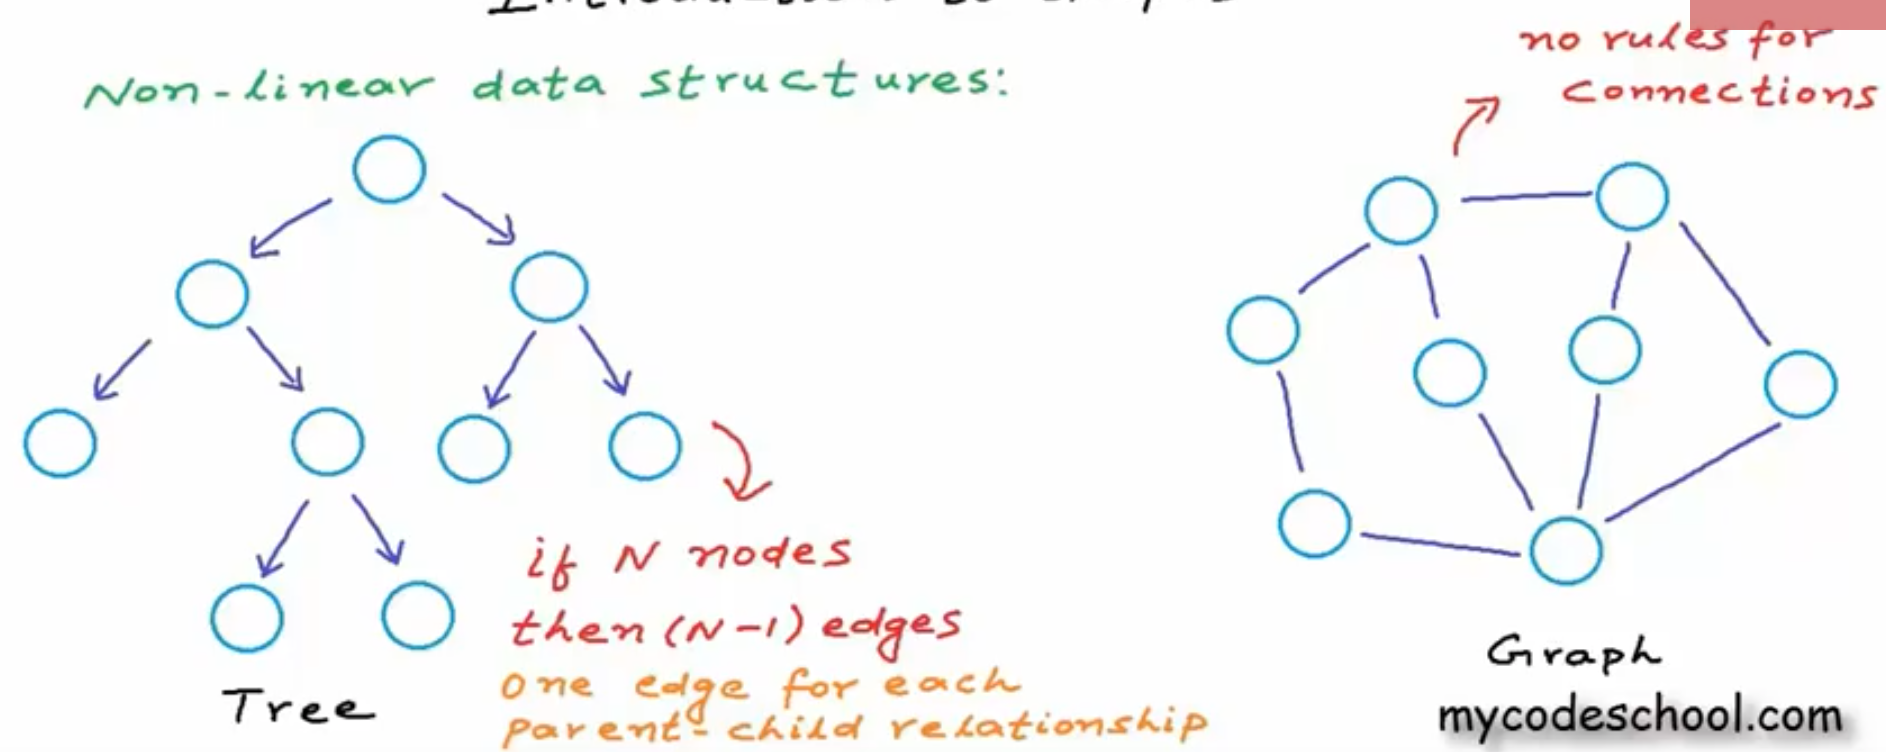 Non-linear data structures:
no rules for
connections
if N nodes
then (N-1) edges
one edge for each
parent-child relationship
Tree
Graph
mycodeschool.com